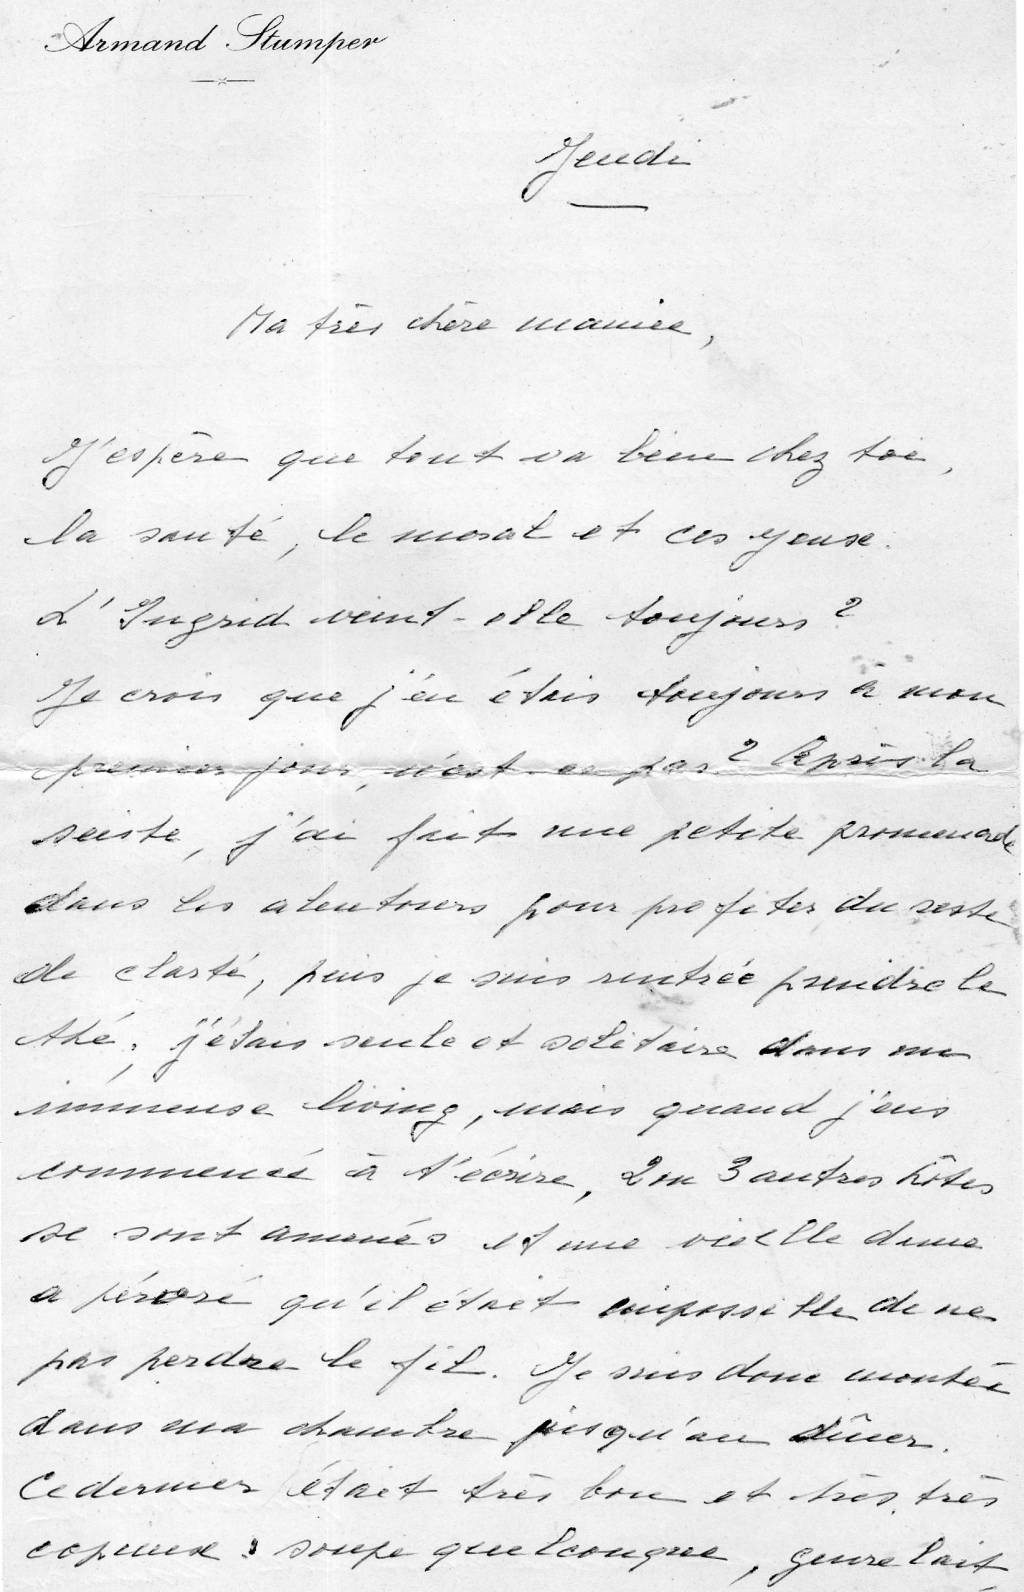 Armand Stumper
Jeudi
Ma très chère mamie,
J'espère que tout va bien chez toi,
la santé, le moral et ces yeux.
L'Ingrid vient-elle toujours ?
Je crois que j'en étais toujours à mon
premier jour, n'est-ce pas ? Après la
sieste, j'ai fait une petite promenade
dans les alentours pour profiter du reste
de clarté, puis je suis rentrée prendre le
thé ; j'étais seule et solitaire dans un
immense living, mais quand j'eus
commencé à t'écrire, 2 ou 3 autres hôtes
se sont amenés et une vieille dame
a péroré qu'il était impossible de ne
pas perdre le fil. Je suis donc montée
dans ma chambre jusqu'au dîner.
Ce dernier était très bon et très, très
copieux : soupe quelconque, genre lait,